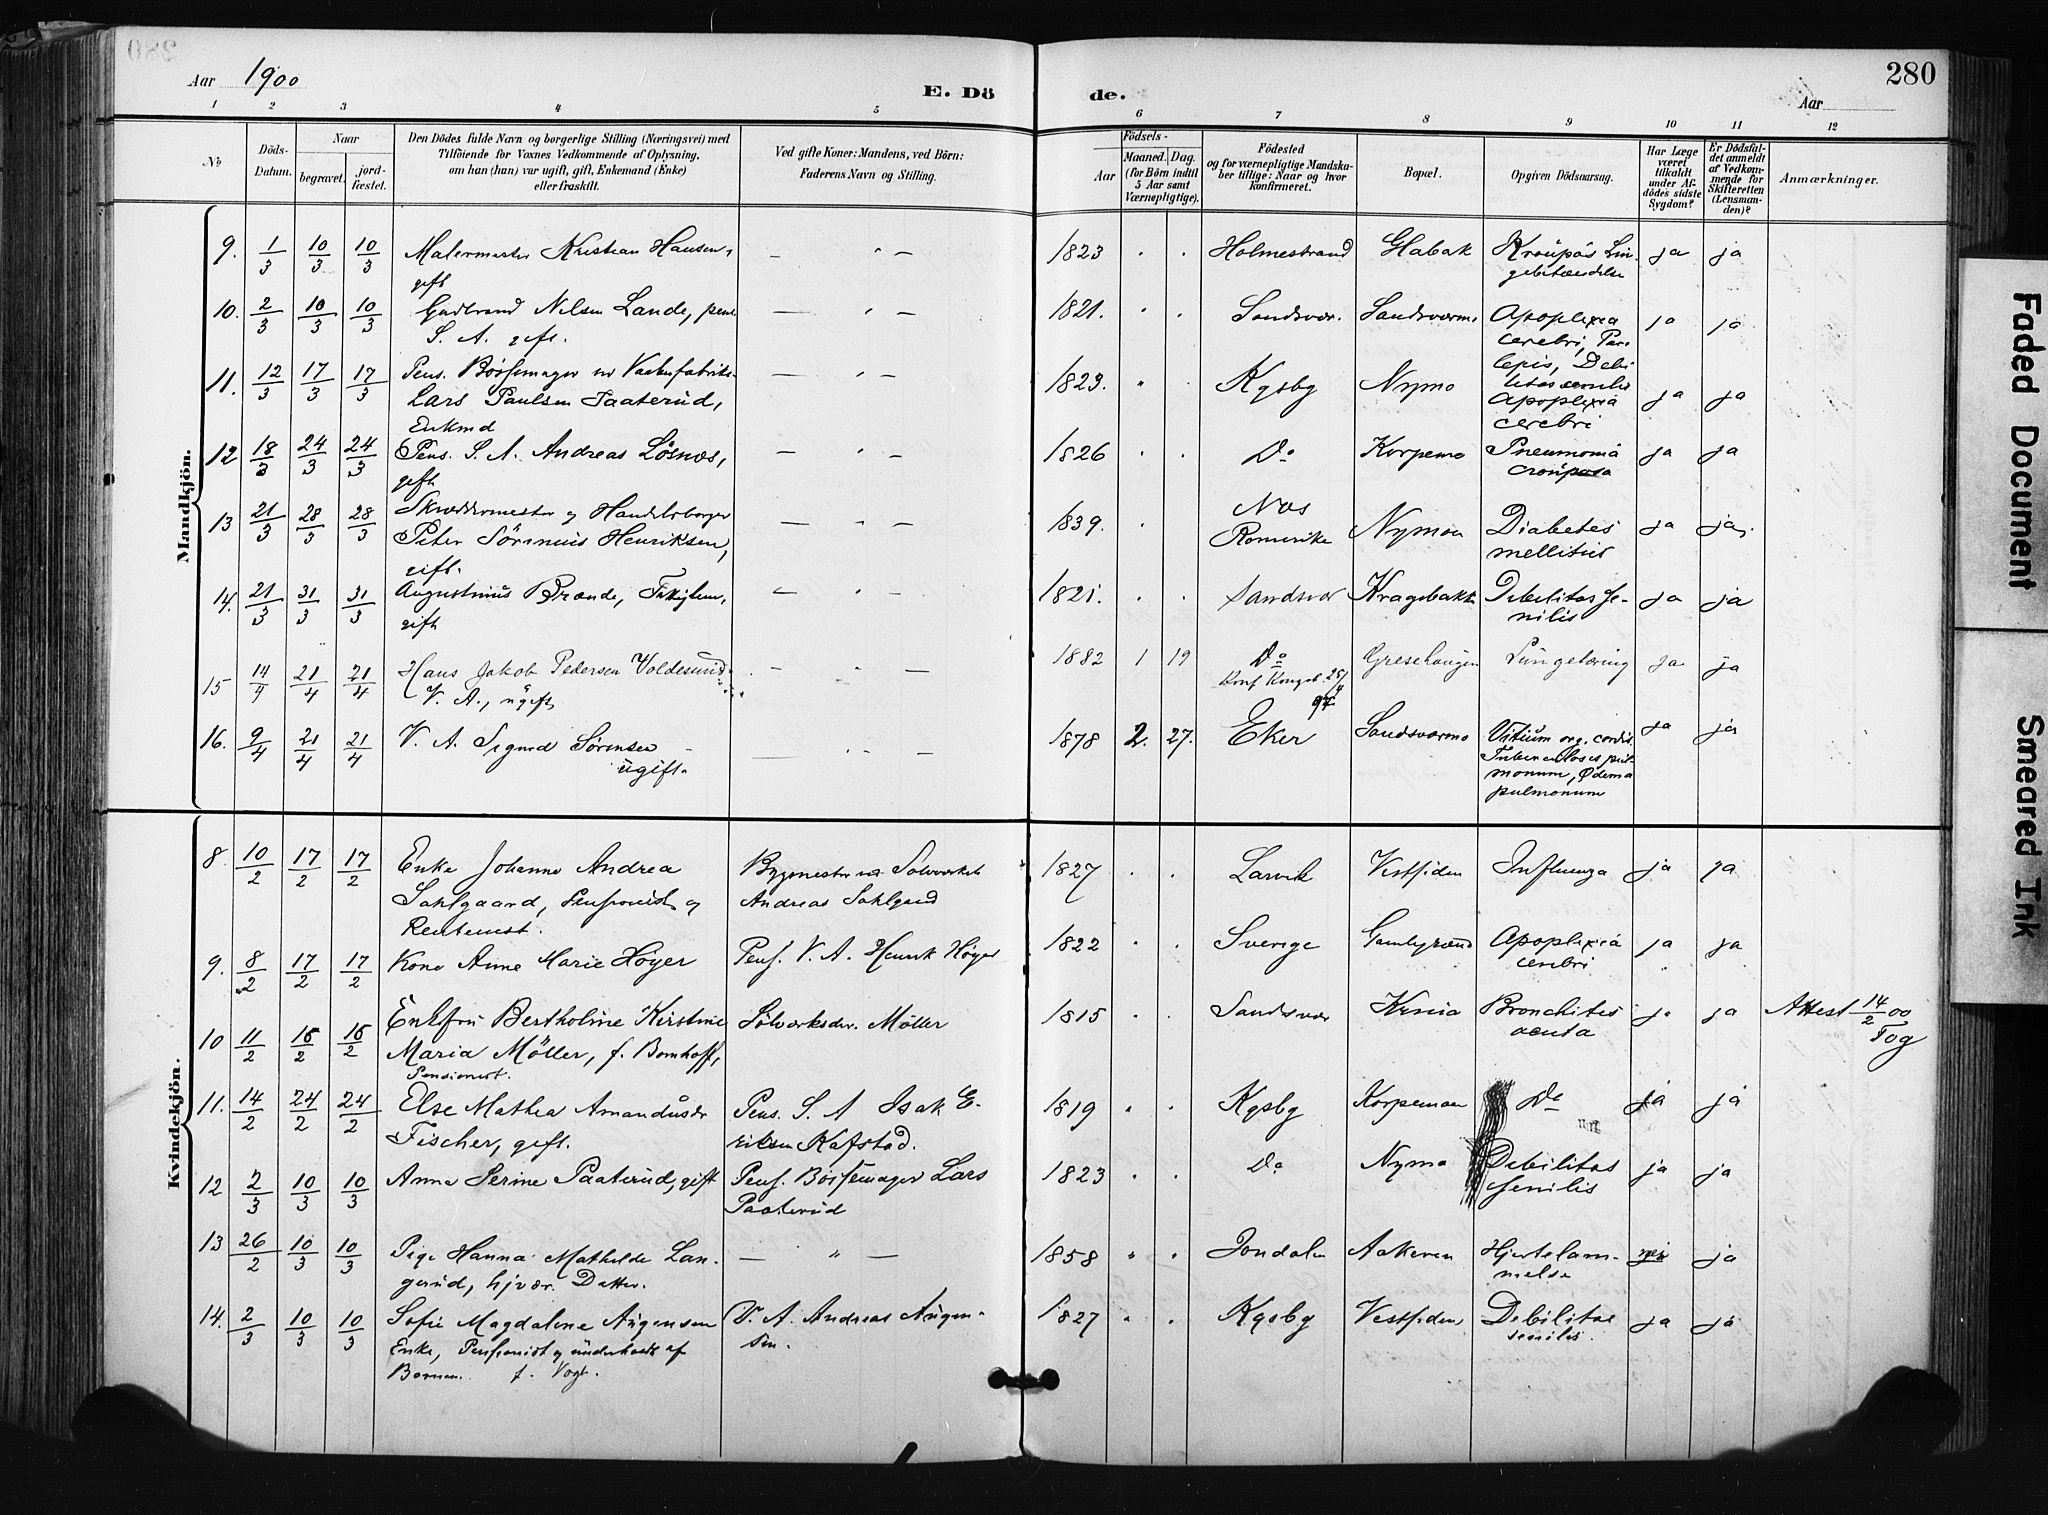 280
Aar 1900
E. Döde.
Aar
1 2 3 4 5 6 7 8 9 10 11 12
No
Döds-Datum.
Naar
begravet.
jord-fæstet.
Den Dödes fulde Navn og borgerlige Stilling (Næringsvei) med
Tilföiende for Voxnes Vedkommende af Oplysning,
om han (hun) var ugift, gift, Enkemand (Enke)
eller fraskilt.
Ved gifte Koner: Mandens, ved Börn:
Faderens Navn og Stilling.
Födsels-
Aar
Maaned. Dag.
(for Börn indtil
5 Aar samt
Værnepligtige).
Födested
og for værnepligtige Mandska-
ber tillige: Naar og hvor
konfirmeret.
Bopæl.
Opgiven Dödsaarsag.
Har Læge
været
tilkaldt
under Af-
dödes sidste
Sygdom?
Er Dödsfal-
det anmeldt
af Vedkom-
mende for
Skifteretten
(Lensman-
den)?
Anmærkninger.
Mandkjön.
9. 1/3 10/3 10/3 Malermester Kristian Hansen, — " — 1823 " " Holmestrand Glabak Kroupøs Lun- ja ja
gift gebetændelse
10. 2/3 10/3 10/3 Gudbrand Nilsen Lande, pens. — " — 1821. " " Sandsvær. Sandsværmo Apoplexia ja ja
S. A. gift. cerebri, Para-
lepsis, Debi-
litas senilis
11. 12/3 17/3 17/3 Pens. Bøssemager v. Vaabenfabriken — " — 1823. " " Kgsby Nymo Apoplexia ja ja
Lars Paulsen Paaterud, cerebri
Enkmd
12 18/3 24/3 24/3 Pens. S. A. Andreas Løsnæs, — " — 1826 " " Do Korpemo Pneumonia ja ja
gift crouposa
13 21/3 28/3 28/3 Skræddermester og Handelsborger — " — 1839. " Næs Nymoen Diabetes ja ja.
Peter Sörenius Henriksen, Romerike mellitus
gift.
14. 21/3 31/3 31/3 Augustinus Brænde, gift — " — 1821. " " Sandsvær Kragsbakken Debilitas se- ja ja
nilis
15 14/4 21/4 21/4 Hans Jakob Pedersen Voldesund — " — 1882 1 19 Do Gresehaugen Lungetæring ja ja
V. A., ugift, Konf Kongsb. 25/4 97
16. 9/4 21/4 21/4 V. A. Sigurd Sørensen — " — 1878 2. 27. Eker Sandsværmo Vitium org. cordis. ja ja
ugift. Tuberculosis pul-
monum, Ødema
pulmonum
Kvindekjön.
8. 10/2 17/2 17/2 Enke Johanne Andrea Bygmester ved Sølvverket 1827 " " Larvik Vestsiden Influenza ja ja
Sahlgaard, Pensionist og Andreas Sahlgaard
Rentenist.
9. 8/2 17/2 17/2 Kone Anne Marie Høyer Pens. V. A. Henrik Høyer 1822 " " Sverige Gamlegrænd Apoplexia ja ja
cerebri
10 11/2 16/2 16/2 Enkefru Bertholine Kirstine Sølvverksdir. Möller 1815 " " Sandsvær Kenia Bronchites ja ja Attest 14/2 00
Maria Möller, f. Bomhoff, acuta Tog
Pensionist.
11. 14/2 24/2 24/2 Else Mathea Amandusdr Pens. S. A Isak E- 1819 " " Kgsby Korpemoen Do ja ja
Fischer, gift. riksen Kafstad.
12 2/3 10/3 10/3 Anne Serine Paaterud, gift Pens. Bøssemager Lars 1823 " " Do Nymo Debilitas ja ja
Paaterud senilis
13 26/2 10/3 10/3 Pige Hanna Mathilde Lan- — " — 1858 " " Jondalen Aakeren Hjertelam- nei ja
gerud, hjvær. Datter. melse
14. 2/3 10/3 10/3 Sofie Magdalene Augensen V. A. Andreas Augen- 1827 " " Kgsby Vestsiden Debilitas ja ja
Enke, Pensionist og underholdt af sen. senilis.
Børnene. f. Vogt.
Faded Document
Smeared Ink